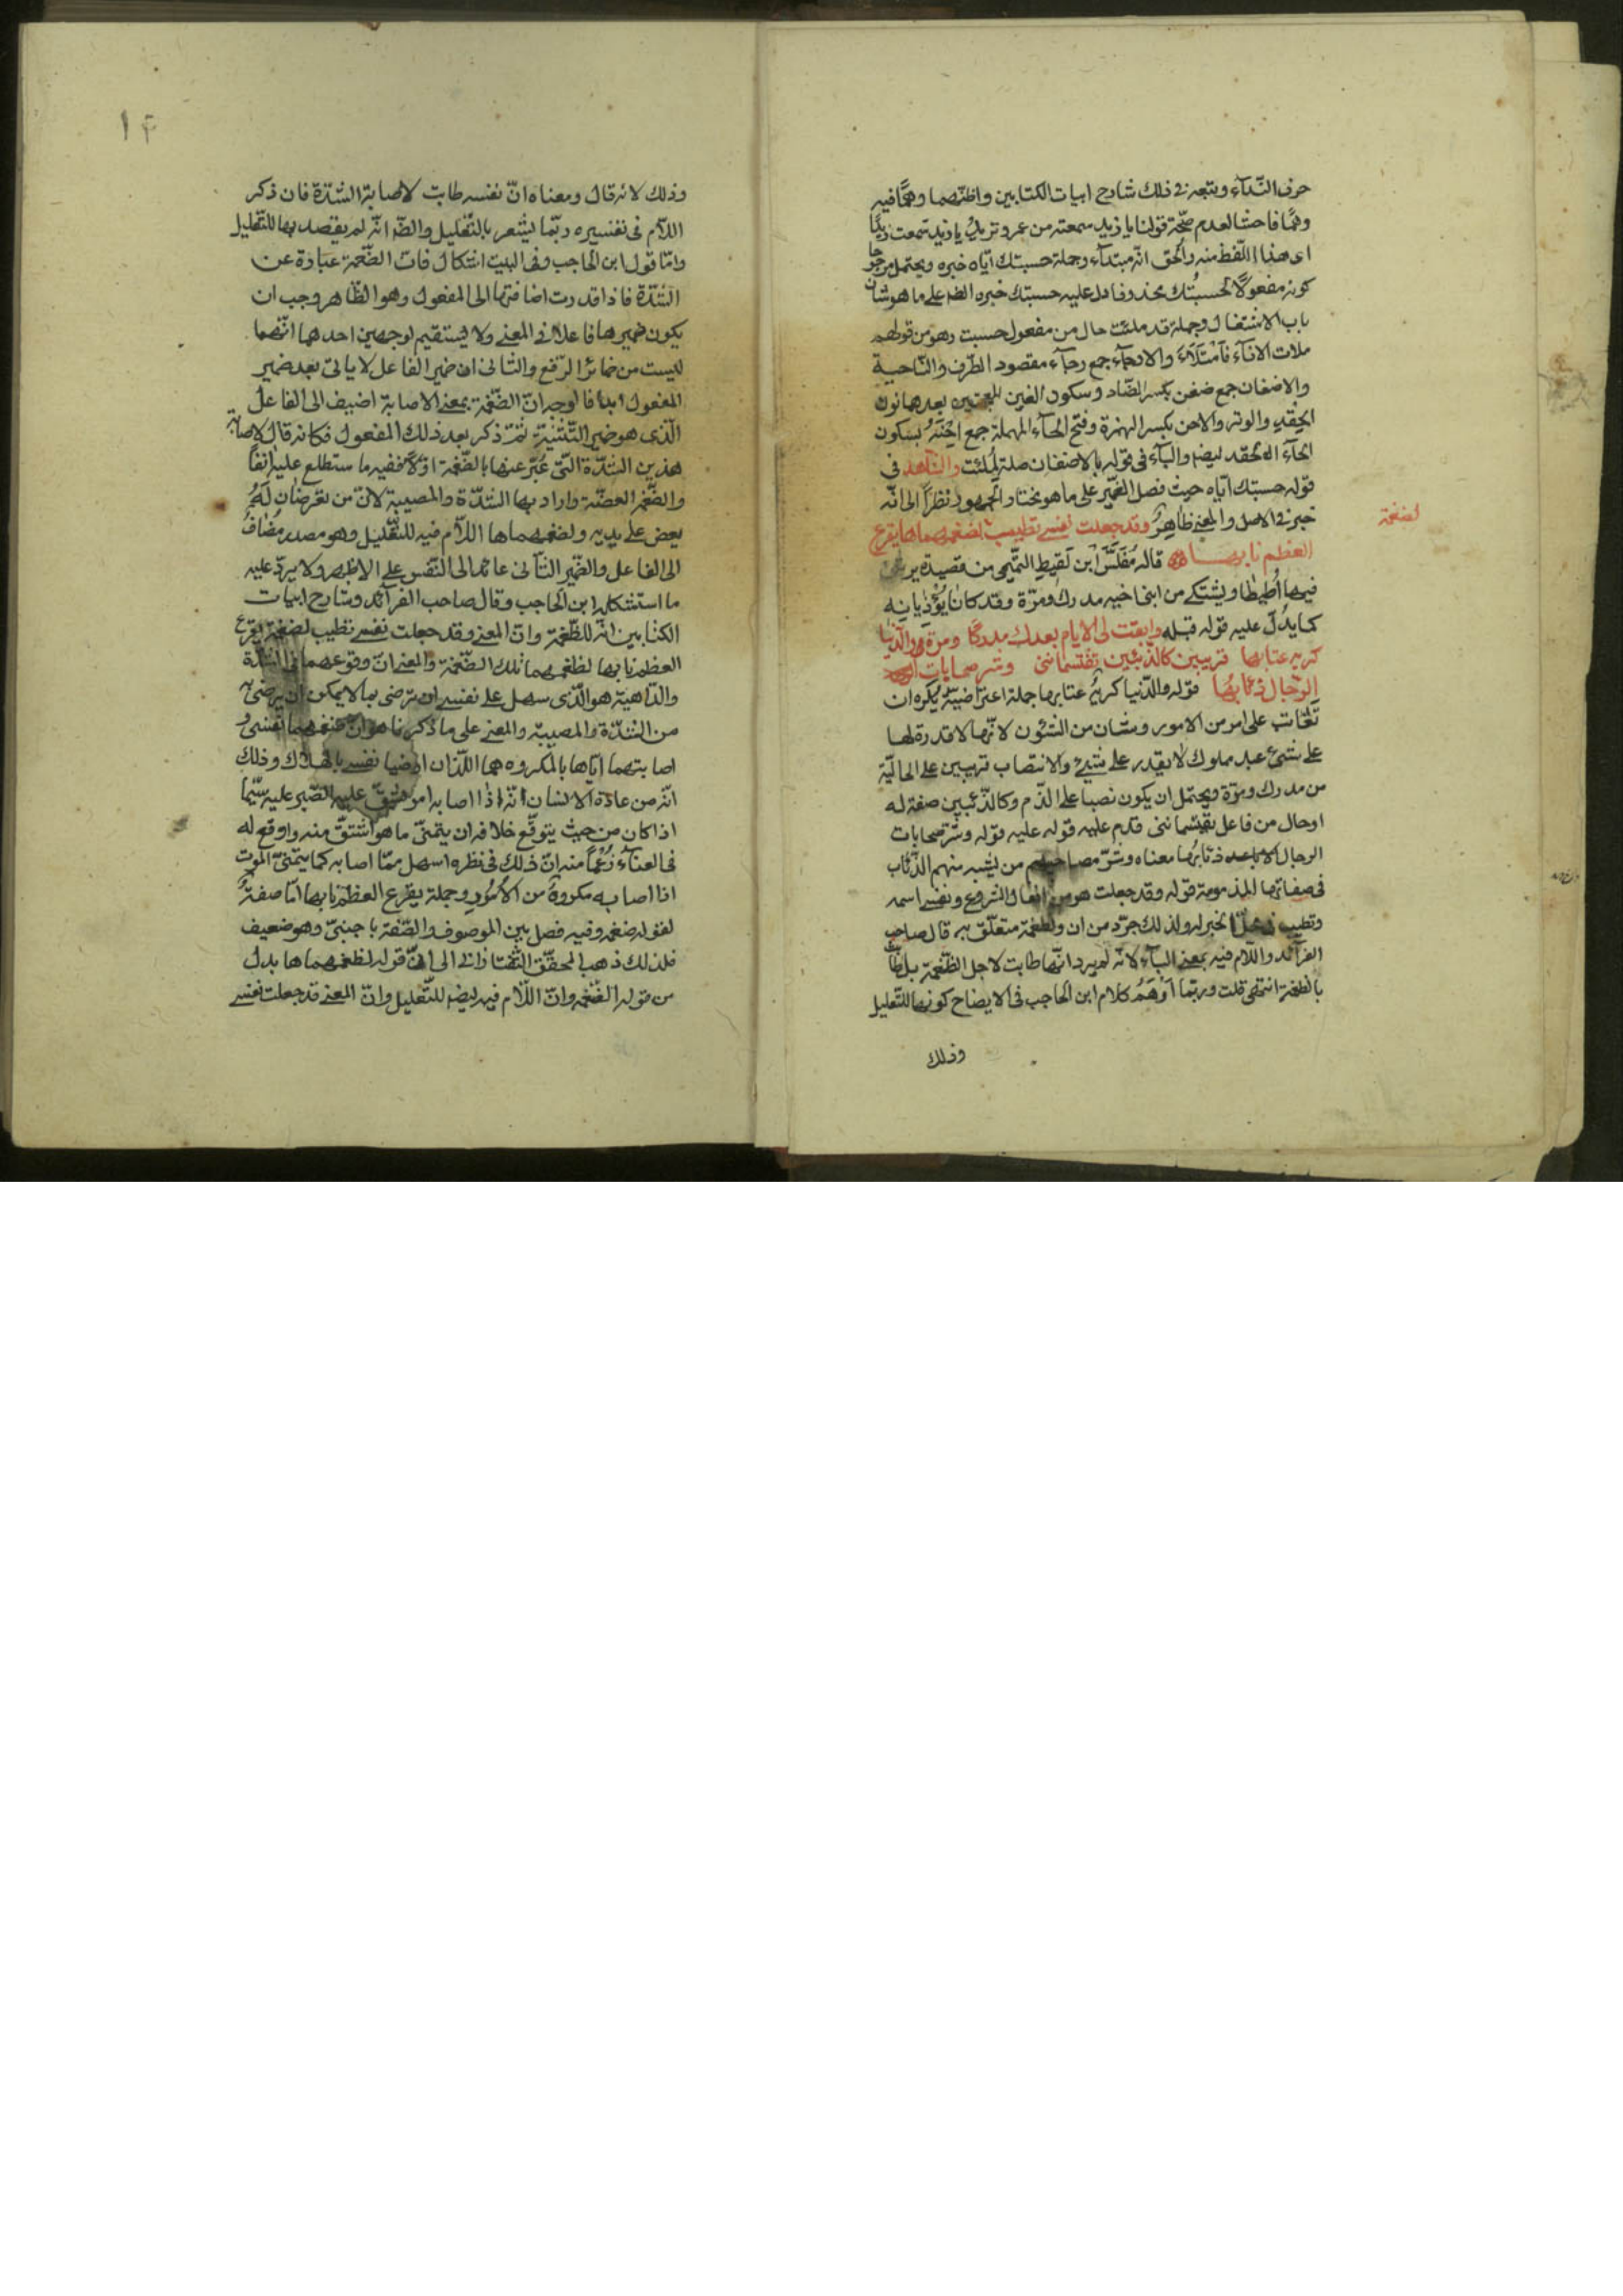 حرف النّدآء ويتبعه فى ذلك شارح ابيات الكتابين واظنّهما وهمًا فيه
وهمًا فاحشا لعدم صحّة قولنا يا زيد سمعته من عمرو تريد يا زيد سمعت زيدًا
اى هذا اللّفظ منه والحق انّه مبتدآء وجملة حسبتك ايّاه خبره ويحتمل مرجوحا
كونه مفعولًا لحسبتك محذوفا دل عليه حسبتك خبره الضا على ما هو شان
باب الاشتغال وجملة قد ملئت حال من مفعول حسبت وهو من قولهم
ملات الانآء فامتلآء والارجآء جمع رجآء مقصور الطّرف والنّاحية
والاضغان جمع ضغن بكسر الضّاد وسكون الغين المعجمتين بعدهما نون
الحقد والوتر والاحن بكسر الهمزة وفتح الحآء المهملة جمع احنة بسكون
الحآء الحقد ايضا والبآء فى قوله بالاضغان صلة لملئت والشّاهد فى
قوله حسبتك ايّاه حيث فصل الضّمير على ما هو مختار الجمهور نظرًا الى انّه
خبر فى الاصل والمعنى ظاهرٌ وقد جعلت نفسى تطيب لضغمهماها يقرع
لضغمة
العظم نابها قاله مُغَلِّس ابن لَقيطِ التّميمى من قصيدة يرثى
فيها اُطيطًا ويشتكى من ابنى اخيه مدرك ومرّة وقد كانا يؤذيانه
كما يدُلّ عليه قوله قبله وابقت لى الايام بعدك مدركًا ومرّة والدّنيا
كريه عتابها قريبين كالذّئبين يقتسماننى وشر صحابات
الرّجال ذئابُها قوله والدّنيا كريهٌ عتابها جملة اعتراضيّة يكره ان
تُعَاتب على امر من الامور وشان من الشئون لانّها لا قدرة لها
على شىء عبد مملوك لا يقدر على شىء والانتصاب قريبين على الحاليّة
من مدرك ومرّة ويحتمل ان يكون نصبا على الذّم وكالذّئبين صفة له
او حال من فاعل يقتسماننى قدم عليه قوله عليه قوله وشرّ صحابات
الرجال ذئابُها معناه وشرّ مصاحبهم من يشبه منهم الذّئاب
فى صفاتها المذمومة قوله وقد جعلت هو من افعال الشروع ونفسى اسمه
وتطيب فى محلّ الخبر له ولذلك جرّد من ان ولضغمة متعلّق به قال صاحب
الفرآئد واللّام فيه بمعنى البآء لانّه لم يرد انّها طابت لاجل الضّغمة بل طابت
بالضغمة انتهى قلت وربّما اَوْهَمُ كلام ابن الحاجب فى الايضاح كونها للتّعليل
وذلك
١٣
وذلك لانه قال ومعناه انّ نفسه طابت لاصابة الشّدّة فان ذكر
اللّام فى تفسيره ربّما يشعر بالتّعليل والظّ انّه لم يقصد بها للتّعليل
وامّا قول ابن الحاجب وفى البيت اشكال فان الضّغمة عبارة عن
الشّدّة فاذا قدرت اضافتها الى المفعول وهو الظّاهر وجب ان
يكون ضميرها فاعلا فى المعنى ولا يستقيم لوجهين احدهما انّهما
ليست من ضمائر الرّفع والثّانى ان ضمير الفاعل لا ياتى بعد ضمير
المفعول ابدا فالوجه انّ الضّغمة بمعنى الاصابة اضيف الى الفاعل
الّذى هو ضمير التّثنية ثمّ ذكر بعد ذلك المفعول فكانه قال لاصابة
هذين الشّدّة الّتى عُبّر عنها بالضّغمة اوّلًا ففيه ما ستطلع عليه آنفًا
والضّغم العضّة واراد بها الشّدّة والمصيبة لانّ من
يعض على يديه ولضغمهماها اللّام فيه للتّعليل وهو مصدر مُضاف
الى الفاعل والضّمير الثّانى عائد الى النّفس على الاظهر ولا يردّ عليه
ما استشكله ابن الحاجب وقال صاحب الفرآئد وشارح ابيات
الكتابين انّه للضّغمة وانّ المعنى وقد جعلت نفسى تطيب لضغمة يقرع
العظم نابها لضغمهما تلك الضّغمة والمعنى انّ وقوعهما فى الشّدّة
والدّاهية هو الّذى سهل على نفسى ان ترضى بما لا يمكن ان يرضى به
من الشّدّة والمصيبة والمعنى على ما ذكرنا هو انّ ضغمهما نفسى و
اصابتهما ايّاها بالمكروه هما اللّذان ارضيا نفسى بالهلاك وذلك
انّه من عادة الانسان انّه اذا اصابه امر يشقّ عليه الصّبر عليه سيّما
اذا كان من حيث يتوقّع خلافه ان يتمنّى ما هو اشقّ منه واوقع له
فى العنآء زُعْمًا منه انّ ذلك فى نظره اسهل ممّا اصابه كما يتمنّى الموت
اذا اصابه مكروهٌ من الاُمُور وجملة يقرع العظم نابها امّا صفةٌ
لقوله ضغمه وفيه فصل بين الموصوف والصّفة باجنبىّ وهو ضعيف
فلذلك ذهب المحقّق التّفتازانى الى انّ قوله لضغمهماها بدل
من قوله الضّغمه وانّ اللّام فيه ايضا للتّعليل وانّ المعنى قد جعلت نفسى